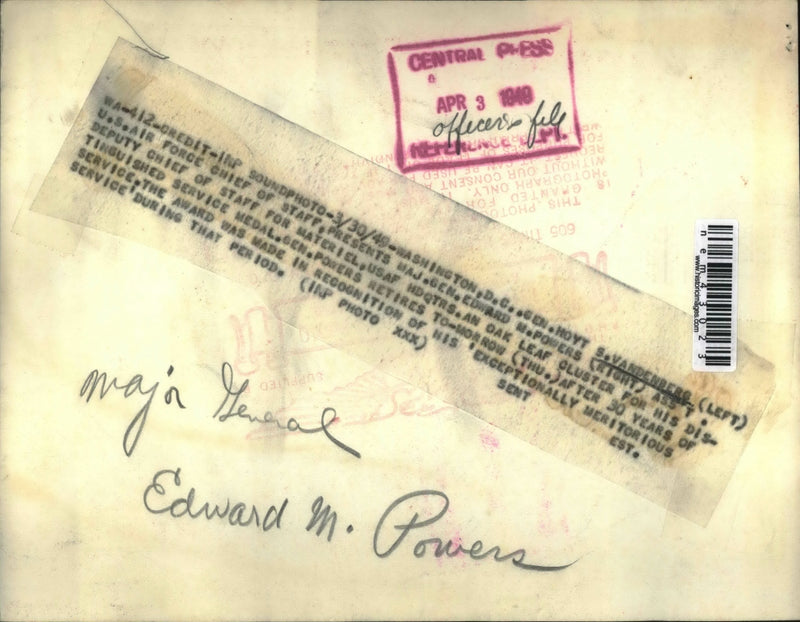 CENTRAL PRESS
APR 3 1949
officers file
REFERENCE DEPT.
WA-412-CREDIT-INP SOUNDPHOTO-3/30/49-WASHINGTON,D.C..GEN.HOYT S.VANDENBERG (LEFT)
U.S.AIR FORCE CHIEF OF STAFF,PRESENTS MAJ.GEN.EDWARD M.POWERS (RIGHT) ASS'T.
DEPUTY CHIEF OF STAFF FOR MATERIEL,USAF HDQTRS.AN OAK LEAF CLUSTER FOR HIS DIS-
TINGUISHED SERVICE MEDAL.GEN.POWERS RETIRES TO-MORROW (THU.)AFTER 30 YEARS OF
SERVICE.THE AWARD WAS MADE IN RECOGNITION OF HIS "EXCEPTIONALLY MERITORIOUS
SERVICE DURING THAT PERIOD. (INP PHOTO XXX) SENT EST.
nem43023
www.historicimages.com
Major General
Edward M. Powers